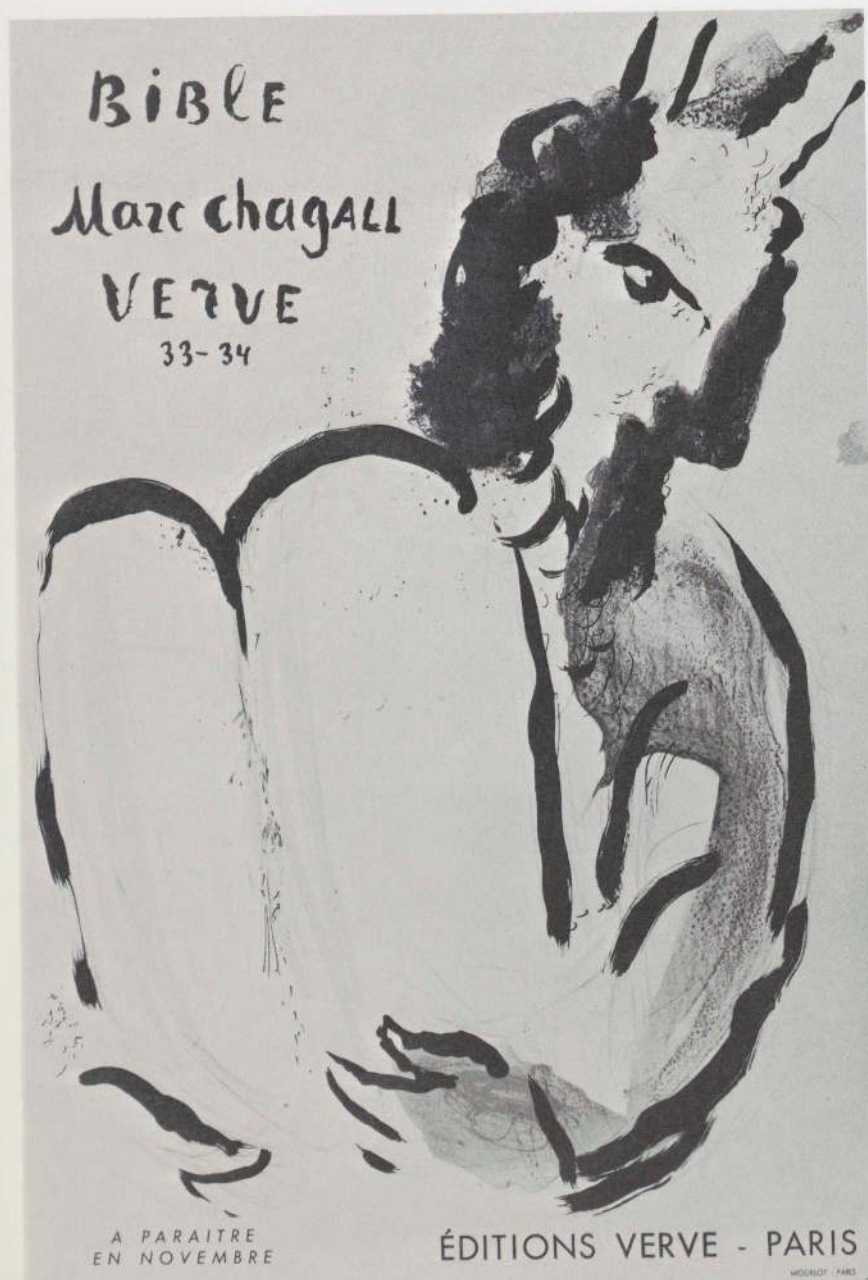 BiBlE
Marc chagALL
VErVE
33-34
A PARAITRE
EN NOVEMBRE
ÉDITIONS VERVE - PARIS
MOURLOT - PARIS